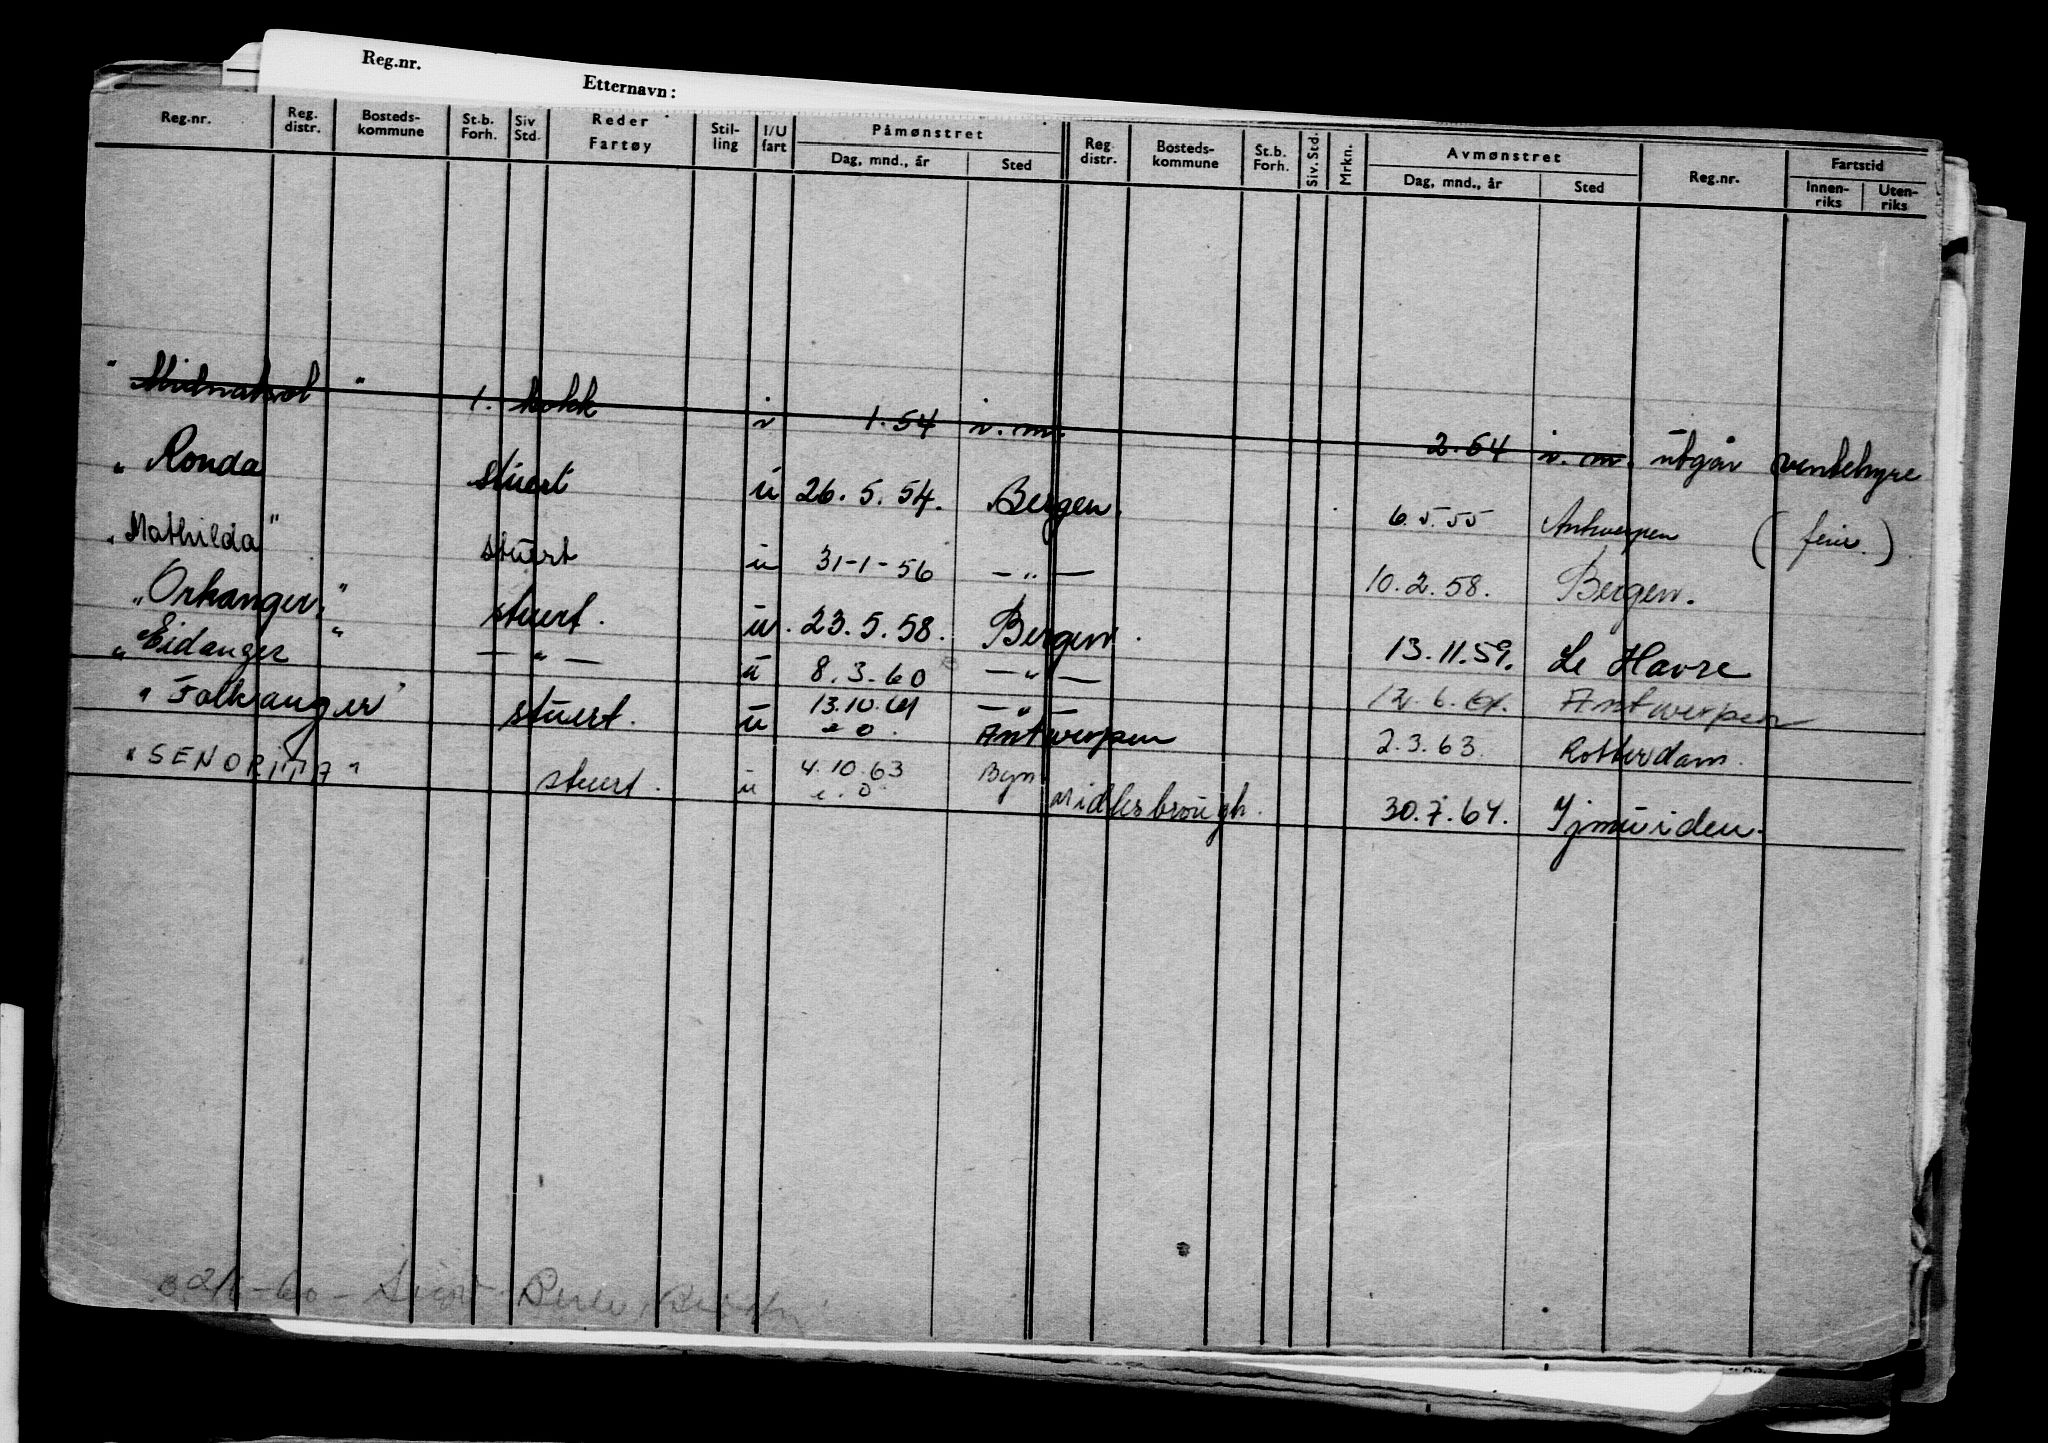 Reg.nr.
Etternavn:
Reg.nr. Reg. distr. Bosteds- kommune St.b. Forh. Siv Std. Reder Fartøy Stil- ling I/U fart Påmønstret Dag, mnd., år Sted Reg distr. Bosteds- kommune St.b. Forh. Siv. Std. Mrkn. Avmønstret Dag, mnd., år Sted Reg.nr. Fartstid Innen- riks Uten- riks
"Midnatsol" 1. kokk i 1.54 i.m. 2.54 i.m. utgår ventehyre
"Ronda stuert u 26.5.54. Bergen. 6.5.55 Antwerpen (feier.)
"Mathilda" stuert u 31-1-56 —"— 10.2.58. Bergen.
"Orkanger" stuert. u. 23.5.58. Bergen. 13.11.59. Le Havre
"Eidanger" —"— u 8.3.60 —"— 12.6.61. Antwerpen
"Falkanger" stuert. u 13.10.61 —"—
e o. Antwerpen 2.3.63. Rotterdam.
"SENORITA" stuert. u 4.10.63 Bgn
e.o. Midlesbrough. 30.7.64. Yjmuiden.